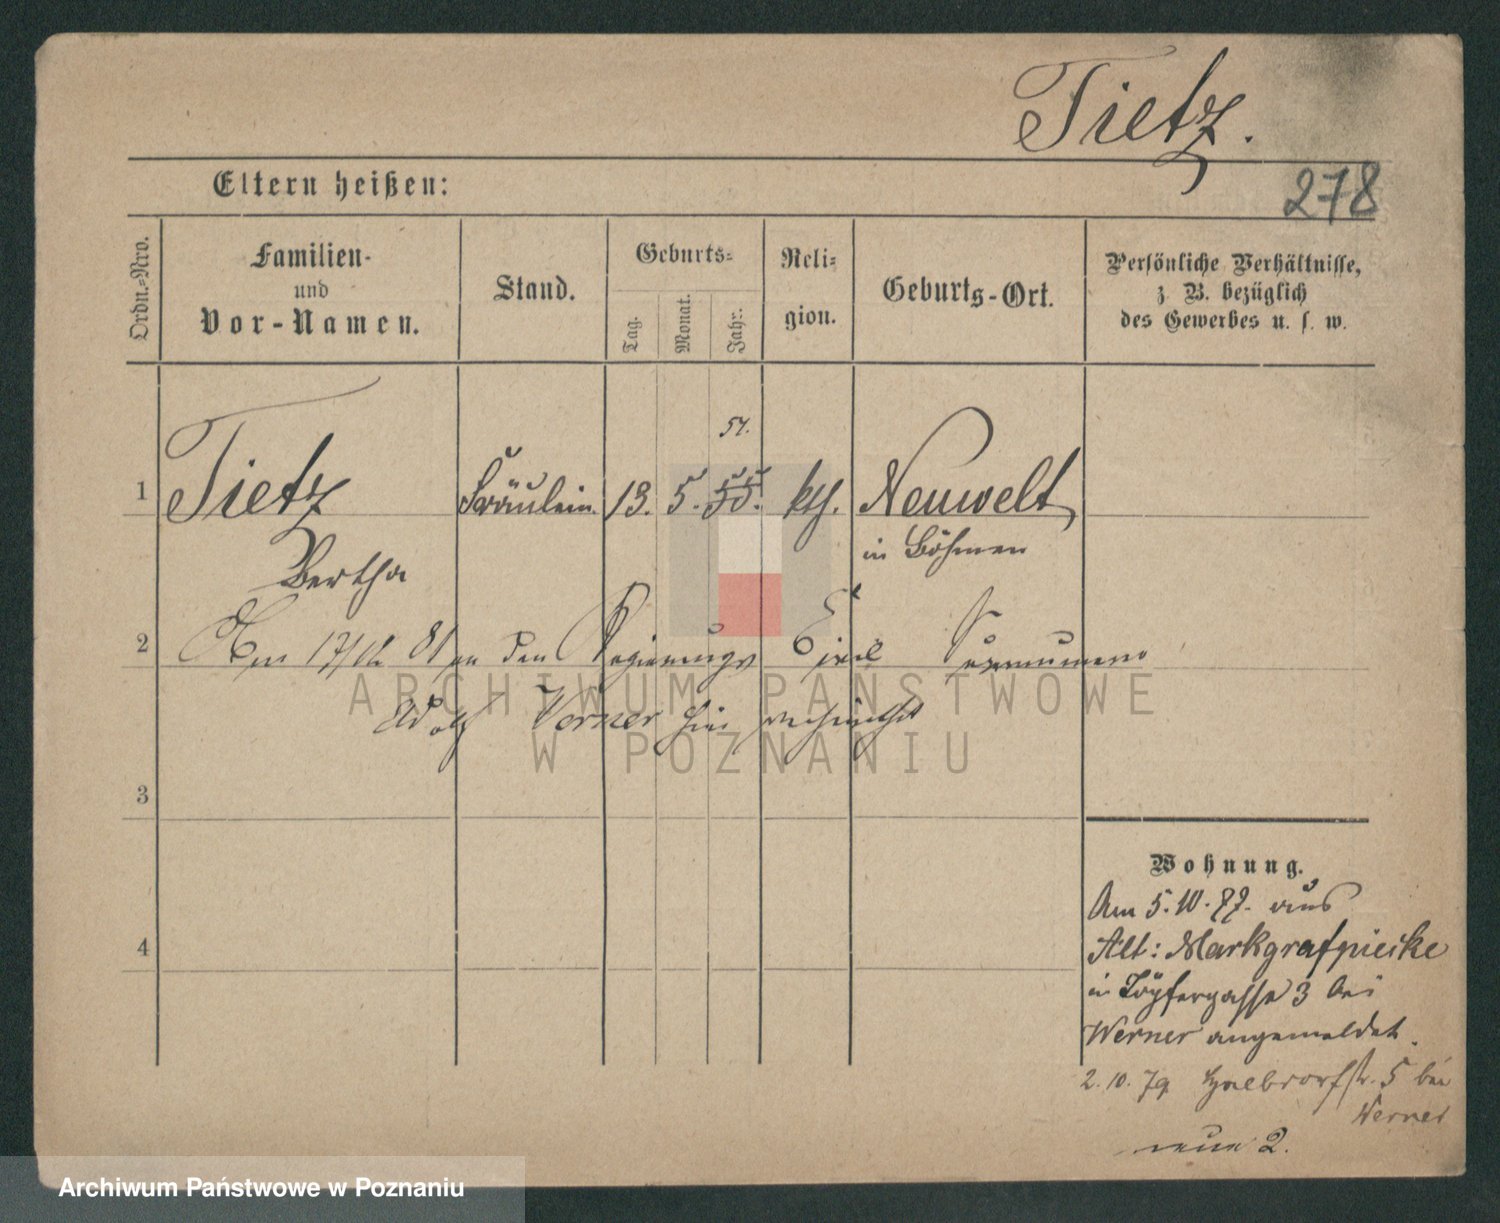 Tietz.
278
Eltern heißen:
Ordn.=Nro.
Familien-
und
Vor-Namen.
Stand.
Geburts=
Tag.
Monat.
Jahr.
Reli=
gion.
Geburts-Ort.
Persönliche Verhältnisse,
z B. bezüglich
des Gewerbes u. s. w.
57.
1 Tietz Fräulein 13. 5. 55. kth. Neuwelt
Bertha
in Böhmen
2 Am 17/ 81 an den Regierungs Civil Supernumerar
Adolf Werner hier verheirathet
ARCHIWUM PAŃSTWOWE
W POZNANIU
3
4
Wohnung.
Am 5. 10. 77. aus
Alt: Markgrafpieske
in Töpfergasse 3 bei
Werner angemeldet.
2. 10. 79 Halbdorfstr. 5 bei
Werner
neue 2.
Archiwum Państwowe w Poznaniu